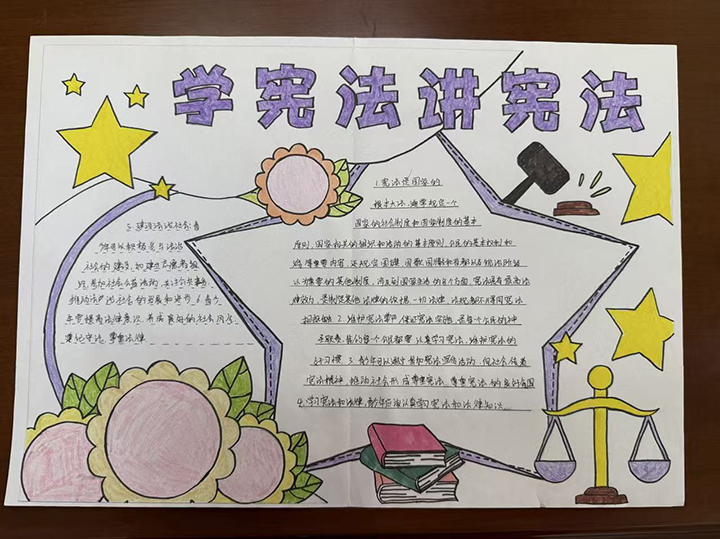 学宪法讲宪法
1.宪法是国家的
根本大法,通常规定一个
国家的社会制度和国家制度的基本
原则,国家机关的组织和活动的基本原则,公民的基本权利和
义务等重要内容,还规定国旗、国歌、国徽和首都以及统治阶级
认为重要的其他制度,涉及到国家生活的各个方面,宪法具有最高法
律效力,是制定其他法律的依据,一切法律、法规都不得同宪法
相抵触 2.维护宪法尊严,保证宪法实施,是每个公民的神
圣职责,我们每个公民都要认真学习宪法,维护宪法的
好习惯 3.青少年可以通过参加宪法宣传活动,向社会传递
宪法精神,推动社会形成尊重宪法、尊重宪法的良好氛围
4.学习宪法和法律,青少年应该认真学习宪法和法律知识
5.建设法治社会:青
少年可以积极参与法治
社会的建设,如
推动法治社会的发展和进步,6青少
年要提高法律意识,养成良好的社会风气
遵纪守法,尊重法律